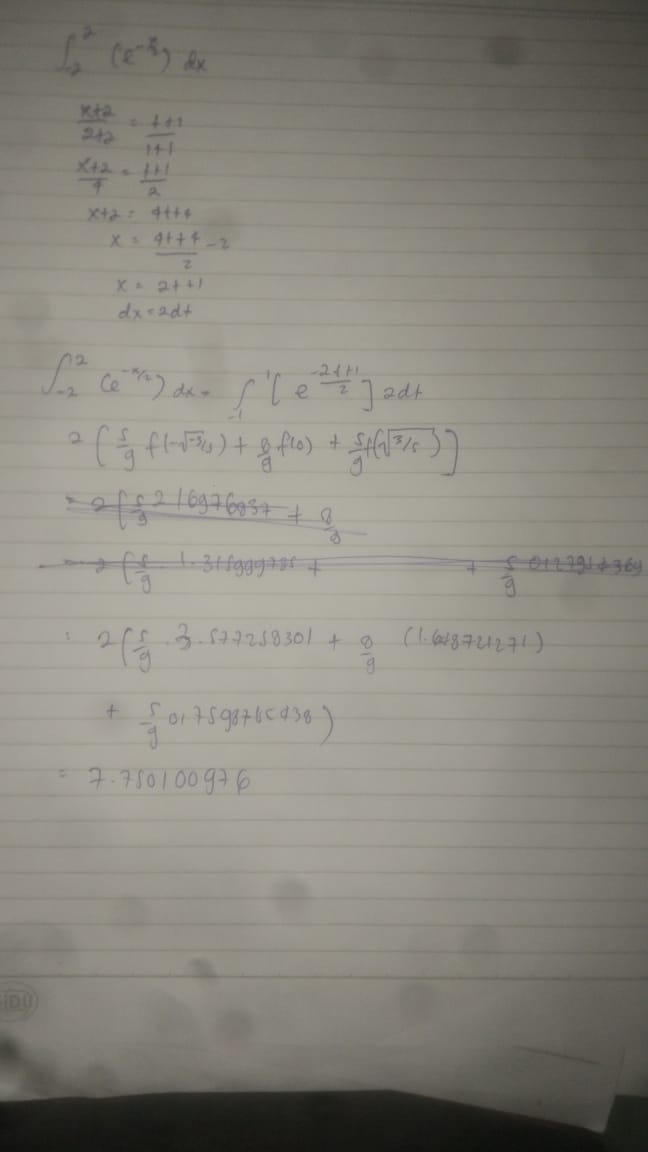 ∫_{-2}^{2} (e^{-x/2}) dx
(x+2)/(2+2) = (t+1)/(1+1)
(x+2)/4 = (t+1)/2
x+2 = 4t+4
x = (4t+4)/2 - 2
x = 2t+1
dx = 2dt
∫_{-2}^{2} (e^{-x/2}) dx = ∫_{-1}^{1} [e^{(-2t+1)/2}] 2dt
2 [5/9 f(-√-3/5) + 8/9 f(0) + 5/9 f(√3/5)]
= 2 [5/9 2 16976837 + 8/9
= 2 (5/9 . 1.315999785 + +
: 2 (5/9 . 3.577258301 + 8/9 (1.648721271)
+ 5/9 0,7598765438)
= 7.750100976
SIDU